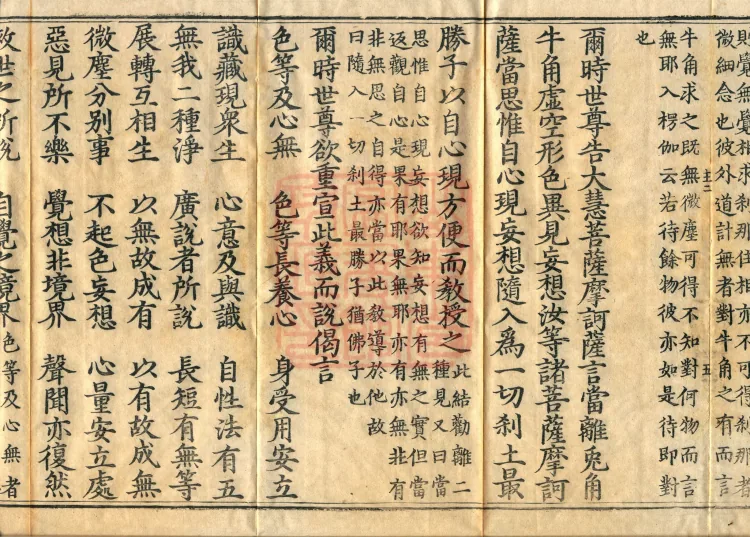 則覺無覺相求剎那住相亦不可得剎那者
微細念也彼外道計無者對牛角之有而言
牛角求之既無微塵可得不知對何物而言
無耶入楞伽云若待餘物彼亦如是待即對
也
爾時世尊告大慧菩薩摩訶薩言當離兎角
牛角虛空形色異見妄想汝等諸菩薩摩訶
薩當思惟自心現妄想隨入為一切剎土最
勝子以自心現方便而教授之此結勸離二種見又曰當
思惟自心現妄想欲知妄想有無之實但當
返觀自心是果有耶果無耶亦有亦無非有
非無思之自得亦當以此教導於他故
曰隨入一切剎土最勝子猶佛子也
爾時世尊欲重宣此義而說偈言
色等及心無 色等長養心 身受用安立
識藏現衆生 心意及與識 自性法有五
無我二種淨 廣說者所說 長短有無等
展轉互相生 以無故成有 以有故成無
微塵分別事 不起色妄想 心量安立處
惡見所不樂 覺想非境界 聲聞亦復然
救世之所說 自覺之境界色等及心無者